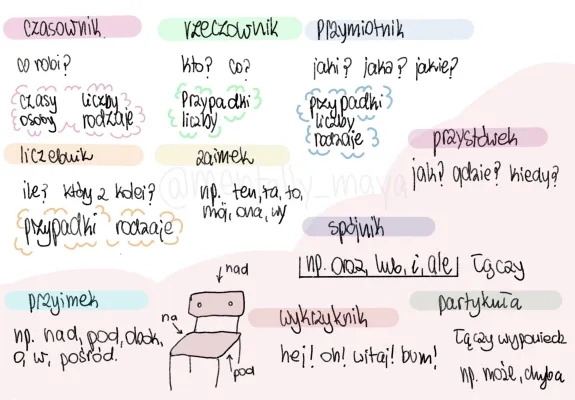 czasownik
co robi?
czasy liczby
osoby rodzaje
rzeczownik
kto? co?
Przypadki
liczby
przymiotnik
jaki? jaka? jakie?
przypadki
liczby
rodzaje
liczebnik
ile? który z kolei?
przypadki rodzaje
zaimek
np. ten, ta, to,
mój, ona, wy
przysłówek
jak? gdzie? kiedy?
spójnik
np. oraz, lub, i, ale łączy
przyimek
np. nad, pod,
o, w, pośród.
nad
na
pod
wykrzyknik
hej! oh! witaj! bum!
partykuła
łączy wypowiedź
np. może, chyba